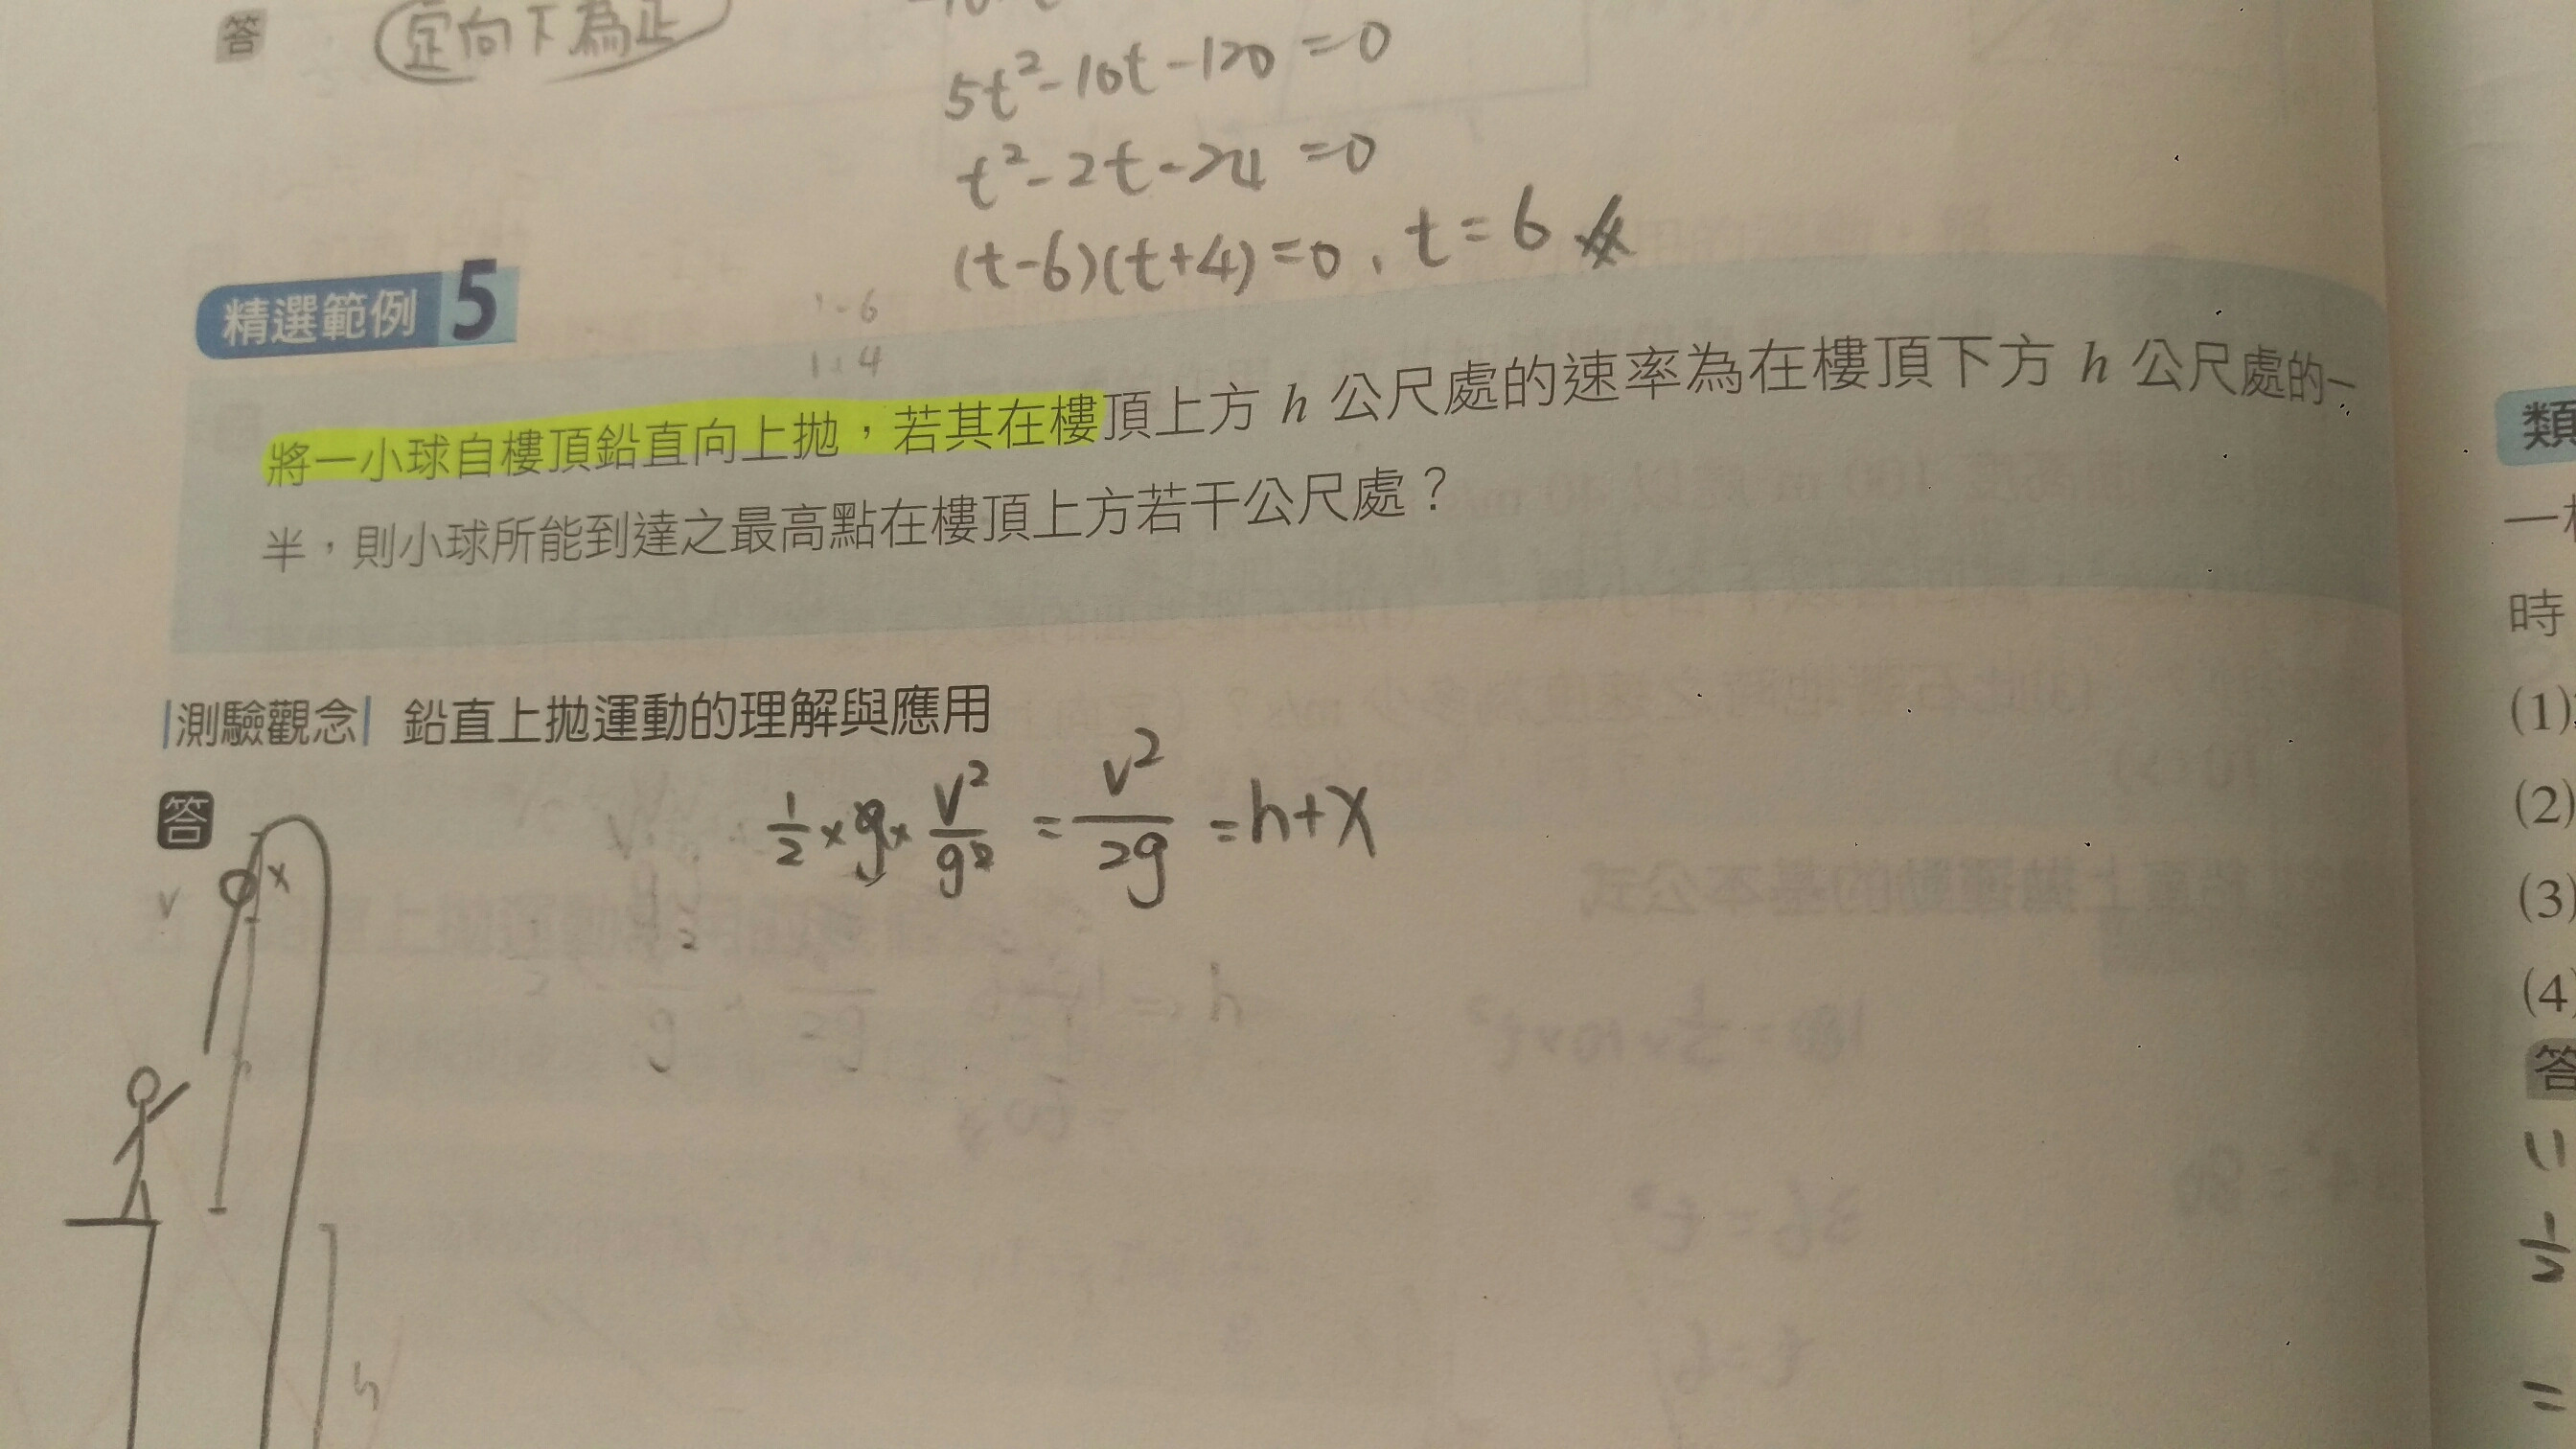 答 定向下為正
5t²-10t-120=0
t²-2t-24=0
(t-6)(t+4)=0, t=6
1-6
1 4
精選範例 5
將一小球自樓頂鉛直向上拋，若其在樓頂上方 h 公尺處的速率為在樓頂下方 h 公尺處的一
半，則小球所能到達之最高點在樓頂上方若干公尺處？
測驗觀念 鉛直上拋運動的理解與應用
答
1/2 × g × v²/g² = v²/2g = h+x
v
x
h
類
一
時
(1)
(2)
(3)
(4)
答
(1
1/2
=